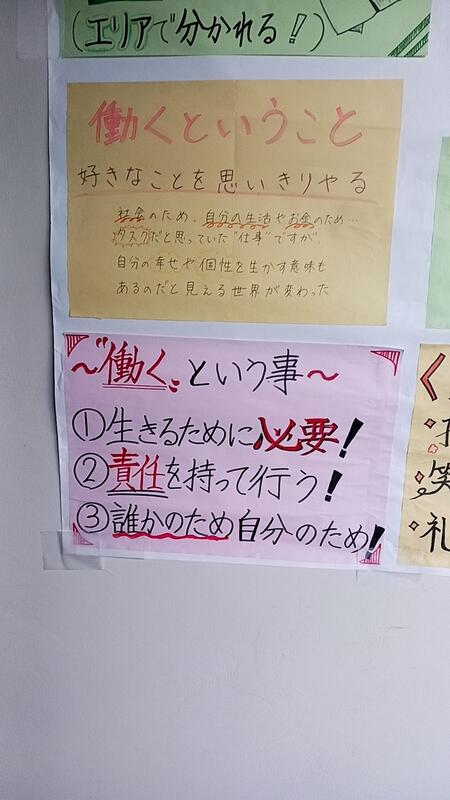 (エリアで分かれる!)
働くということ
好きなことを思いきりやる
社会のため、自分の生活やお金のため…
タスクだと思っていた"仕事"ですが、
自分の幸せや個性を生かす意味も
あるのだと見える世界が変わった
～"働く"という事～
①生きるために必要!
②責任を持って行う!
③誰かのため自分のため!
く
笑
礼